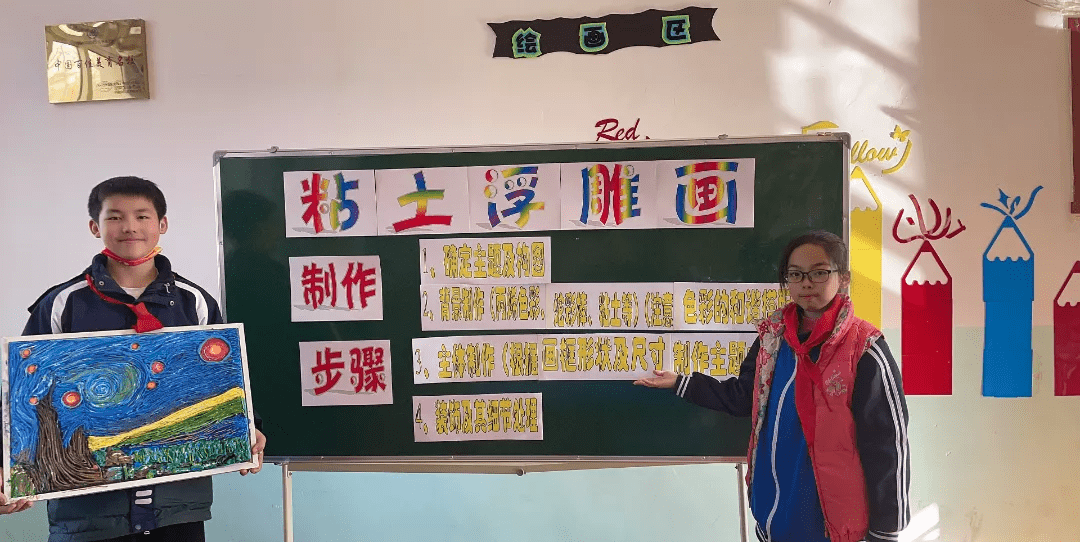 中国百佳美育名校
绘画区
Red
ellow
粘土浮雕画
制作
步骤
1、确定主题及构图
2、背景制作（丙烯色彩、 粘土等）（注意 色彩的和谐
3、主体制作（根据画框形状及尺寸 制作主题
4、装饰及其细节处理